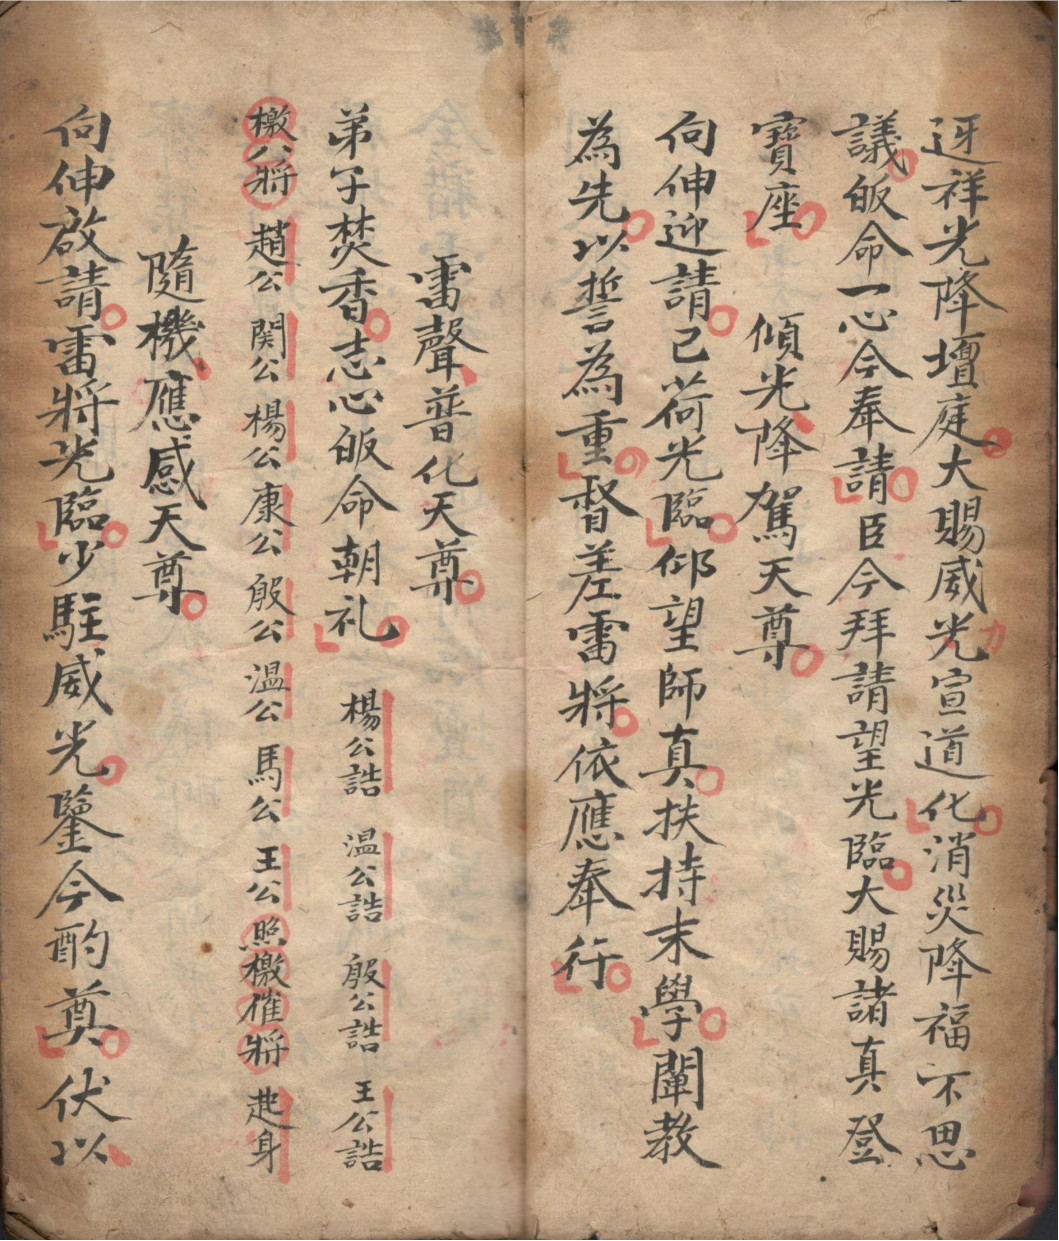 迓祥光降壇庭大賜威光宣道化消災降福不思
力
議皈命一心今奉請臣今拜請望光臨大賜諸真登
寶座　傾光降駕天尊
向伸迎請已荷光臨仰望師真扶持末學闡教
為先以誓為重督差雷將依應奉行
雷聲普化天尊
弟子焚香志心皈命朝礼　楊公誥　溫公誥　殷公誥　王公誥
檄八將　趙公　関公　楊公　康公　殷公　溫公　馬公　王公　照檄催將　起身
隨機應感天尊
向伸啟請雷將光臨少駐威光鑒今酌奠伏以